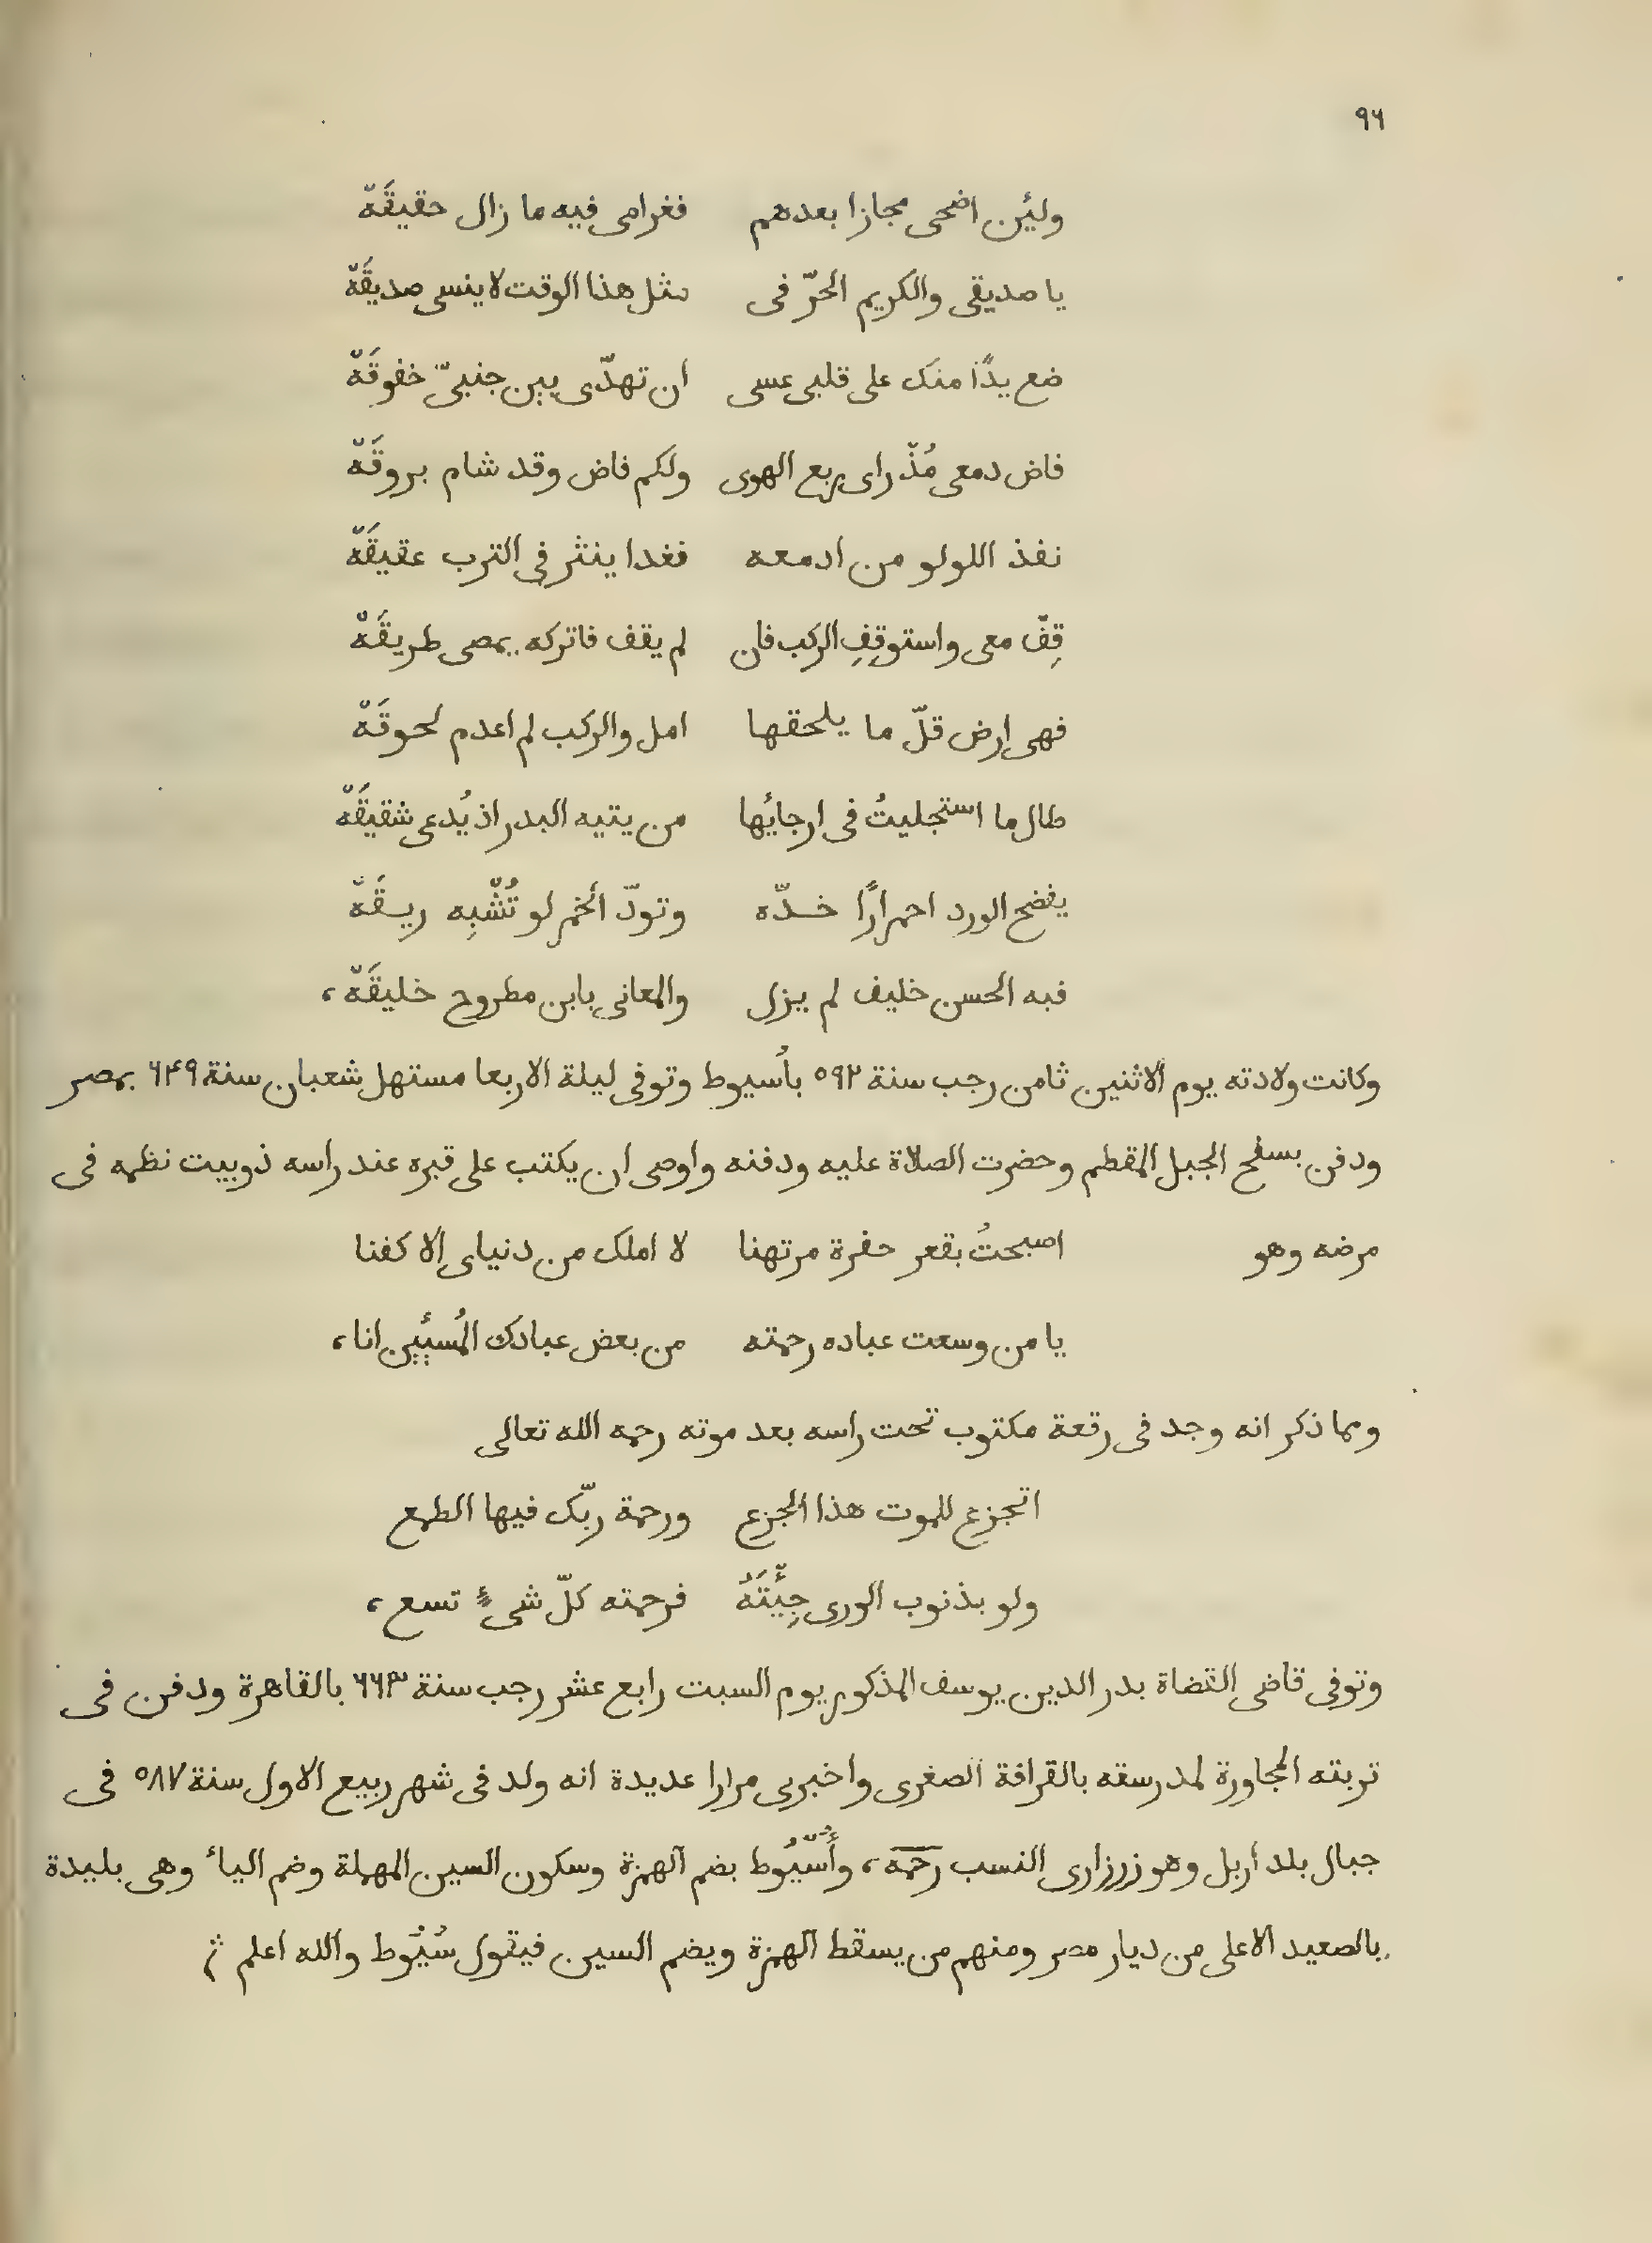 ٩٦
ولئن اضحى مجازا بعدهم فغرامى فيه ما زال حقيقَهْ
يا صديقى والكريم الحرّ فى مثل هذا الوقت لا ينسى صديقَهْ
ضع يدًا منك على قلبى عسى ان تهدّى بين جنبىّ خفوقَهْ
فاض دمعى مُذْ راى ربع الهوى ولكم فاض وقد شام بروقَهْ
نفذ اللولو من ادمعه فغدا ينثر فى الترب عقيقَهْ
قِفْ معى واستوقِفِ الركب فان لم يقف فاتركه يمضى طريقَهْ
فهى ارض قلّ ما يلحقها امل والركب لم اعدم لحوقَهْ
طال ما استجليتُ فى ارجائها من يتيه البدر اذ يُدعى شقيقَهْ
يفضح الورد احمرارًا خدّه وتودّ الخمر لو تُشْبِه ريقَهْ
فبه الحسن خليف لم يزل والمعانى بابن مطروح خليقَهْ،
وكانت ولادته يوم الاثنين ثامن رجب سنة ٥٩٢ بأسيوط وتوفى ليلة الاربعا مستهل شعبان سنة ٦٤٩ بمصر
ودفن بسفح الجبل المقطم وحضرت الصلاة عليه ودفنه واوصى ان يكتب على قبره عند راسه ذوبيت نظمه فى
مرضه وهو اصبحتُ بقعر حفرة مرتهنا لا املك من دنياى إلا كفنا
يا من وسعت عباده رحمته من بعض عبادك المُسيئين انا،
ومما ذكر انه وجد فى رقعة مكتوب تحت راسه بعد موته رحمه الله تعالى
اتجزع للموت هذا الجزع ورحمة ربّك فيها الطمع
ولو بذنوب الورى جِئْتَهُ فرحمته كلّ شىءٍ تسع،
وتوفى قاضى القضاة بدر الدين يوسف المذكور يوم السبت رابع عشر رجب سنة ٦٦٣ بالقاهرة ودفن فى
تربته المجاورة لمدرسته بالقرافة الصغرى واخبرى مرارا عديدة انه ولد فى شهر ربيع الاول سنة ٥٨٧ فى
جبال بلد اربل وهو زرزارى النسب رحمه، وأُسْيُوط بضم الهمزة وسكون السين المهملة وضم الياء وهى بليدة
بالصعيد الاعلى من ديار مصر ومنهم من يسقط الهمزة ويضم السين فيقول سُيُوط والله اعلم